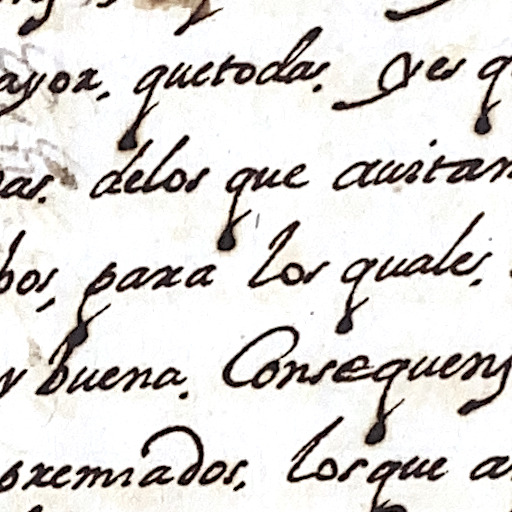 ayor, que todas. y es q
as. delos que auitan
bos, para los quales.
y buena. Consequen
premiados, los que a